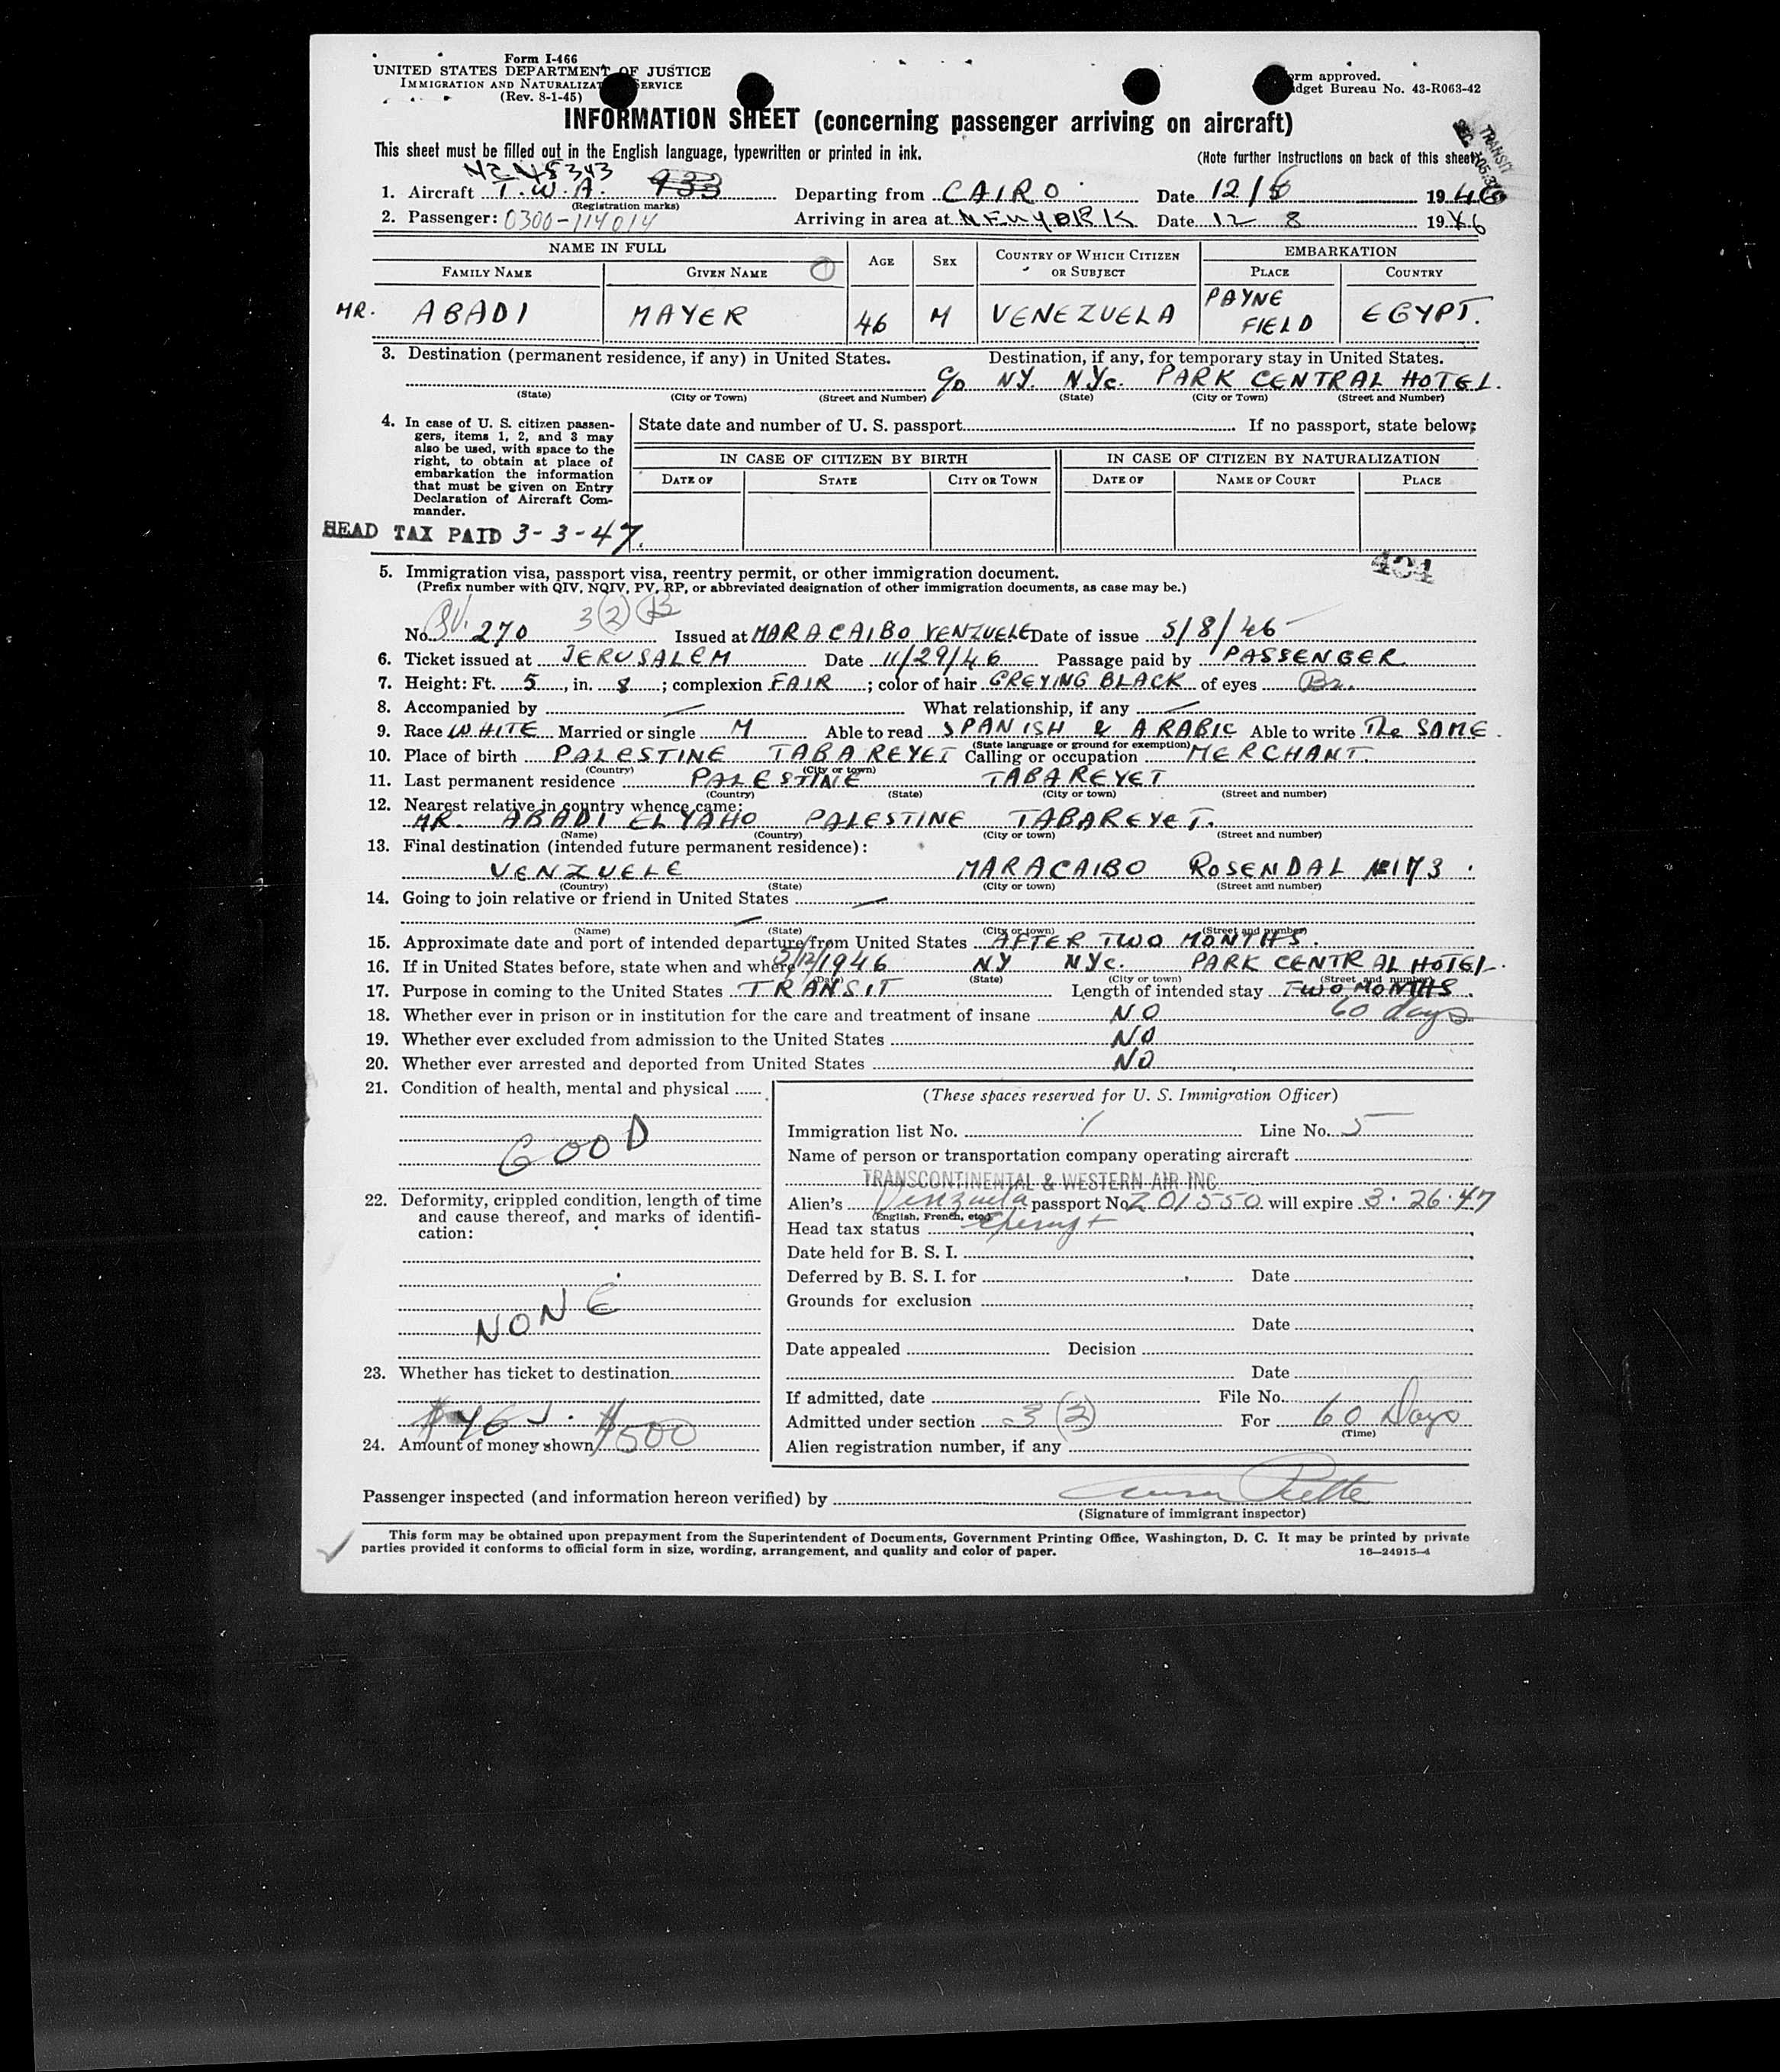 Form I-466
UNITED STATES DEPARTMENT OF JUSTICE
IMMIGRATION AND NATURALIZATION SERVICE
(Rev. 8-1-45)
Form approved.
Budget Bureau No. 43-R063-42
INFORMATION SHEET (concerning passenger arriving on aircraft)
This sheet must be filled out in the English language, typewritten or printed in ink.
(Note further instructions on back of this sheet)
TRANSIT
1. Aircraft T.W.A. 933 Departing from CAIRO Date 12/6 1946
(Registration marks)
2. Passenger: 0300-114014 Arriving in area at NEW YORK Date 12 8 1946
NAME IN FULL
FAMILY NAME GIVEN NAME AGE SEX COUNTRY OF WHICH CITIZEN OR SUBJECT EMBARKATION PLACE COUNTRY
MR. ABADI MAYER 46 M VENEZUELA PAYNE FIELD EGYPT.
3. Destination (permanent residence, if any) in United States. Destination, if any, for temporary stay in United States.
c/o NY. NYc. PARK CENTRAL HOTEL.
(State) (City or Town) (Street and Number) (State) (City or Town) (Street and Number)
4. In case of U. S. citizen passengers, items 1, 2, and 3 may also be used, with space to the right, to obtain at place of embarkation the information that must be given on Entry Declaration of Aircraft Commander.
State date and number of U. S. passport If no passport, state below:
IN CASE OF CITIZEN BY BIRTH IN CASE OF CITIZEN BY NATURALIZATION
DATE OF STATE CITY OR TOWN DATE OF NAME OF COURT PLACE
HEAD TAX PAID 3-3-47.
404
5. Immigration visa, passport visa, reentry permit, or other immigration document.
(Prefix number with QIV, NQIV, PV, RP, or abbreviated designation of other immigration documents, as case may be.)
3(2)
No. 270 Issued at MARACAIBO VENZUELE Date of issue 5/8/46
6. Ticket issued at JERUSALEM Date 11/29/46 Passage paid by PASSENGER
7. Height: Ft. 5, in. 8; complexion FAIR; color of hair GREYING BLACK of eyes Br.
8. Accompanied by — What relationship, if any —
9. Race WHITE Married or single M Able to read SPANISH & ARABIC Able to write The SAME.
(State language or ground for exemption)
10. Place of birth PALESTINE TABAREYET Calling or occupation MERCHANT.
(Country) (City or town)
11. Last permanent residence PALESTINE TABAREYET
(Country) (State) (City or town) (Street and number)
12. Nearest relative in country whence came:
MR. ABADI ELYAHO PALESTINE TABAREYET.
(Name) (Country) (City or town) (Street and number)
13. Final destination (intended future permanent residence):
VENZUELE MARACAIBO ROSENDAL № 173.
(Country) (State) (City or town) (Street and number)
14. Going to join relative or friend in United States —
—
(Name) (State) (City or town) (Street and number)
15. Approximate date and port of intended departure from United States AFTER TWO MONTHS.
16. If in United States before, state when and where /12/1946 NY NYc. PARK CENTRAL HOTEL.
(Date) (State) (City or town) (Street and number)
17. Purpose in coming to the United States TRANSIT Length of intended stay TWO MONTHS.
60 days
18. Whether ever in prison or in institution for the care and treatment of insane NO
19. Whether ever excluded from admission to the United States NO
20. Whether ever arrested and deported from United States NO
21. Condition of health, mental and physical
GOOD
22. Deformity, crippled condition, length of time and cause thereof, and marks of identification:
NONE
23. Whether has ticket to destination
24. Amount of money shown $500
(These spaces reserved for U. S. Immigration Officer)
Immigration list No. 1 Line No. 5
Name of person or transportation company operating aircraft
TRANSCONTINENTAL & WESTERN AIR INC.
Alien's Venzuela passport No 201550 will expire 3-26-47
(English, French, etc.)
Head tax status Exempt
Date held for B. S. I.
Deferred by B. S. I. for Date
Grounds for exclusion
Date
Date appealed Decision
Date
If admitted, date File No.
Admitted under section 3(2) For 60 Days
(Time)
Alien registration number, if any
Passenger inspected (and information hereon verified) by
(Signature of immigrant inspector)
This form may be obtained upon prepayment from the Superintendent of Documents, Government Printing Office, Washington, D. C. It may be printed by private
parties provided it conforms to official form in size, wording, arrangement, and quality and color of paper. 16—24915-4